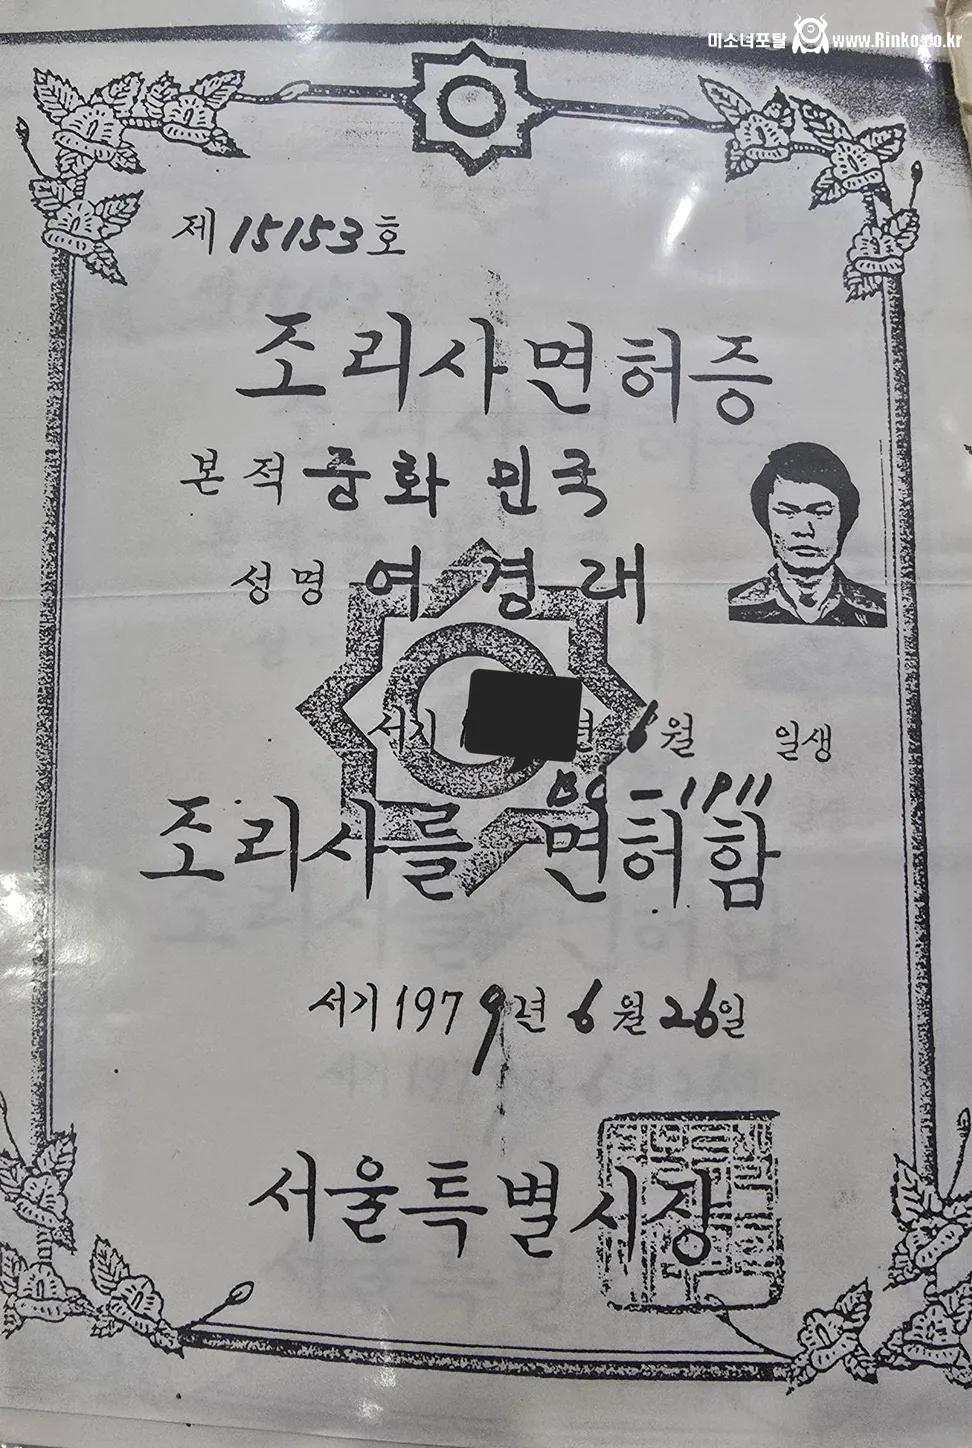 미소녀포탈 www.Rinko.co.kr
제 15153 호
조리사면허증
본적 중화 민국
성명 여경래
서기 년 6월 일생
조리사를 면허함
서기 1979년 6월 26일
서울특별시장